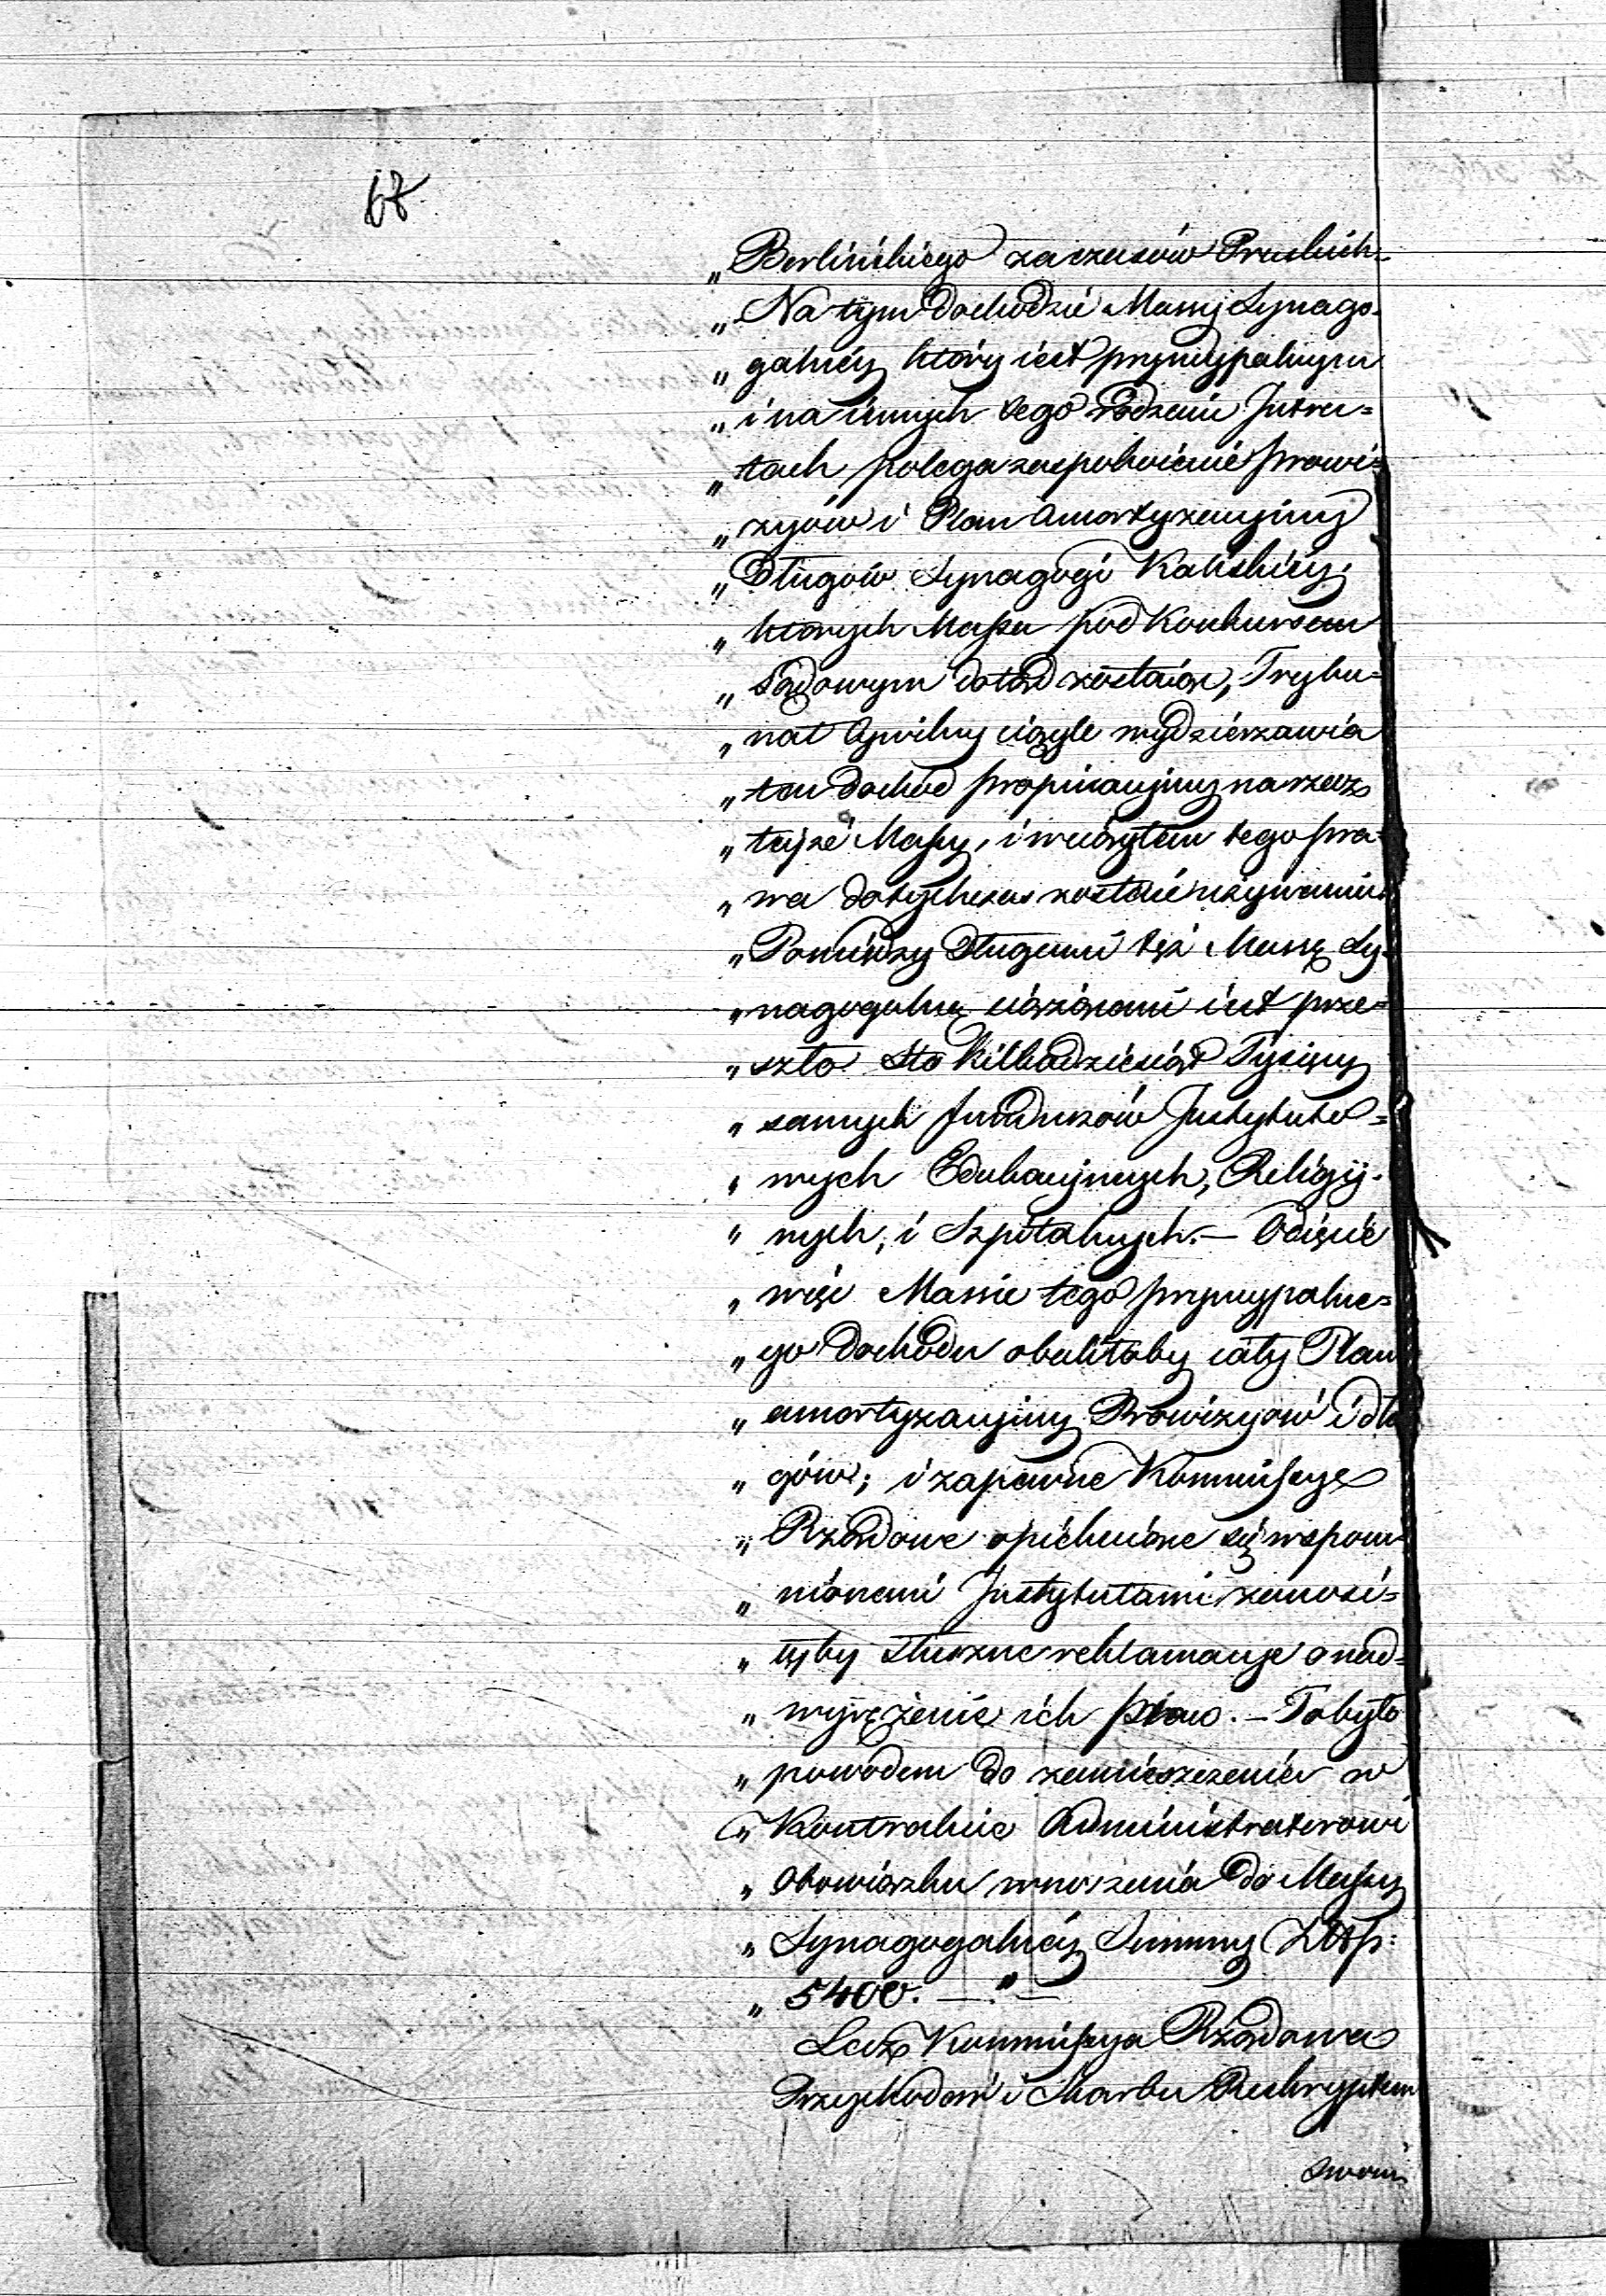 68
„ Berlińskiego za czasów Pruskich.
„ Na tym dochodzie Massy Synago-
„ galnéy który iest pryncypalnym
„ i na innych tego rodzaiu Intra=
„ tach, polega zaspokoienie prowi=
„ zyów i Plan Amortyzacyiny
„ Długów Synagogi Kaliskiéy,
„ których Massa pod Konkursem
„ Sądowym dotąd zostaiąc, Trybu=
„ nał Cywilny ciągle wydzierzawia
„ ten dochód propinacyiny na rzecz
„ teyże Massy, i w ciągłem tego pra-
„ wa dotychczas zostaie używaniu.
„ Pomiędzy Długami też Massę Sy-
„ nagogalną ciążącemi iest prze=
„ szło Sto kilkadziesiąt Tysięcy
„ samych funduszów Instytuto=
„ wych Edukacyjnych, Religij-
„ nych, i Szpitalnych. — Odięcie
„ więc Massie tego pryncypalne=
„ go dochodu obaliłoby cały Plan
„ amortyzacyiny Prowizyów i dłu
„ gów; i zapewne Kommissye
„ Rządowe opiekuiące się wspom-
„ nionemi Instytutami zanosi=
„ łyby słuszne reklamacye o nad=
„ wyrężenie ich praw. — To było
„ powodem do zamieszczenia w
„ Kontrakcie Administratorowi
„ obowiązku wnoszenia do Massy
„ Synagogalnéy Summy Złtp:
„ 5400. — „ —
Lecz Kommissya Rządowa
Przychodów i Skarbu Reskryptem
swoim